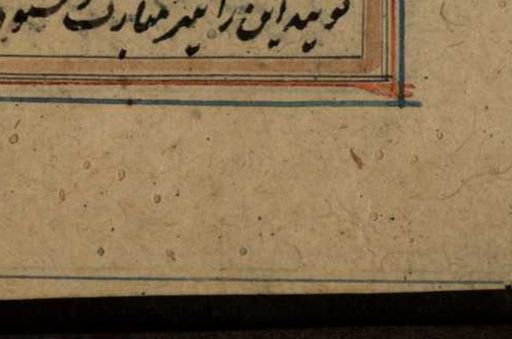 گویند این را نیز مبارک